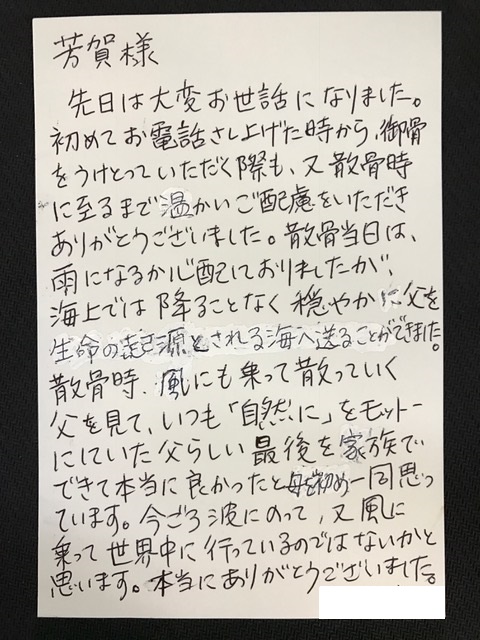 芳賀様
先日は大変お世話になりました。
初めてお電話さし上げた時から、御骨
をうけとっていただく際も、又散骨時
に至るまで温かいご配慮をいただき
ありがとうございました。散骨当日は、
雨になるか心配しておりましたが、
海上では降ることなく穏やかに父を
生命の起源とされる海へ送ることができました。
散骨時、風にも乗って散っていく
父を見て、いつも「自然に」をモットー
にしていた父らしい最後を家族で
できて本当に良かったと母を初め一同思っ
ています。今ごろ波にのって、又風に
乗って世界中に行っているのではないかと
思います。本当にありがとうございました。